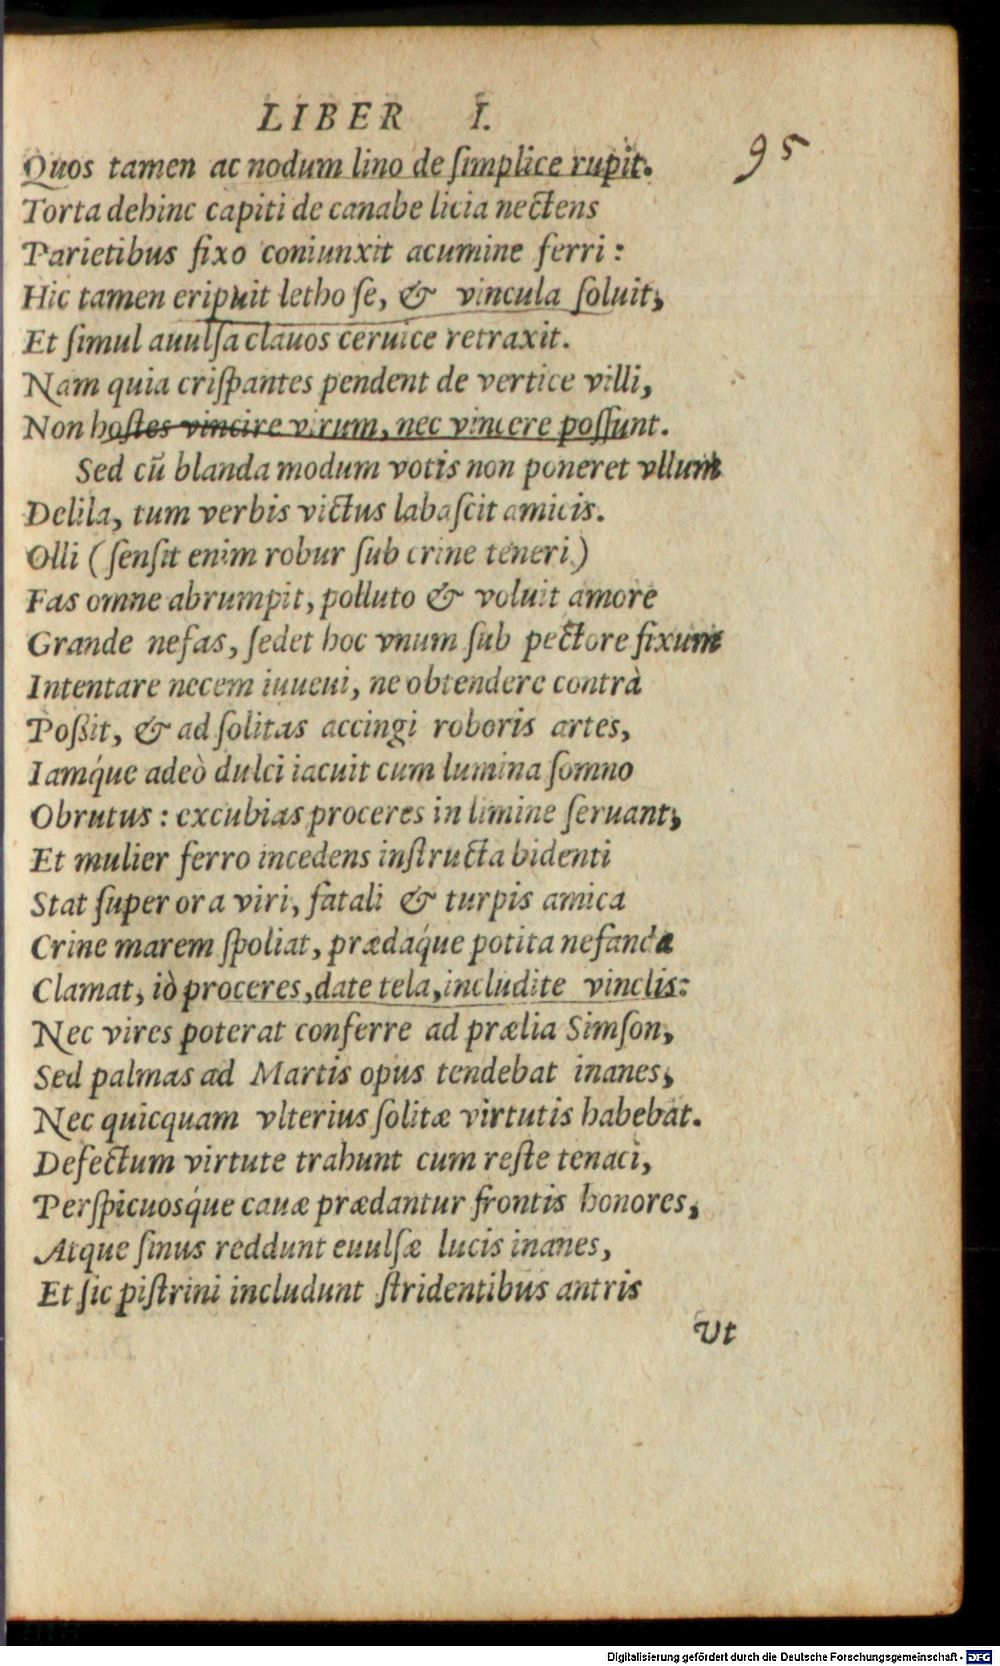 LIBER I.
95
Quos tamen ac nodum lino de ſimplice rupit.
Torta dehinc capiti de canabe licia nectens
Parietibus fixo coniunxit acumine ferri:
Hic tamen eripuit letho ſe, & vincula ſoluit,
Et ſimul auulſa clauos ceruice retraxit.
Nam quia criſpantes pendent de vertice villi,
Non hoſtes vincire virum, nec vincere poſſunt.
Sed cū blanda modum votis non poneret vllum
Delila, tum verbis victus labaſcit amicis.
Olli (ſenſit enim robur ſub crine teneri)
Fas omne abrumpit, polluto & voluit amore
Grande nefas, ſedet hoc vnum ſub pectore fixum
Intentare necem iuueui, ne obtendere contrà
Poßit, & ad ſolitas accingi roboris artes,
Iamq́ue adeò dulci iacuit cum lumina ſomno
Obrutus: excubias proceres in limine ſeruant,
Et mulier ferro incedens inſtructa bidenti
Stat ſuper ora viri, fatali & turpis amica
Crine marem ſpoliat, prædaq́ue potita nefanda
Clamat, iò proceres, date tela, includite vinclis:
Nec vires poterat conferre ad prælia Simſon,
Sed palmas ad Martis opus tendebat inanes,
Nec quicquam vlterius ſolitæ virtutis habebat.
Defectum virtute trahunt cum reſte tenaci,
Perſpicuosq́ue cauæ prædantur frontis honores,
Atque ſinus reddunt euulſæ lucis inanes,
Et ſic piſtrini includunt ſtridentibus antris
Vt
Digitalisierung gefördert durch die Deutsche Forschungsgemeinschaft - DFG